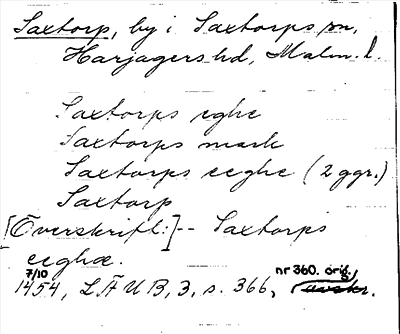 Saxtorp, by i Saxtorps sn,
Harjagers hd, Malm. l.
Saxtorps eghe
Saxtorps mark
Saxtorps eeghe (2 ggr.)
Saxtorp
[Överskrift:]-- Saxtorps
eeghæ.
7/10 nr 360. orig.
1454, L.Ä U B, 3, s. 366, avskr.